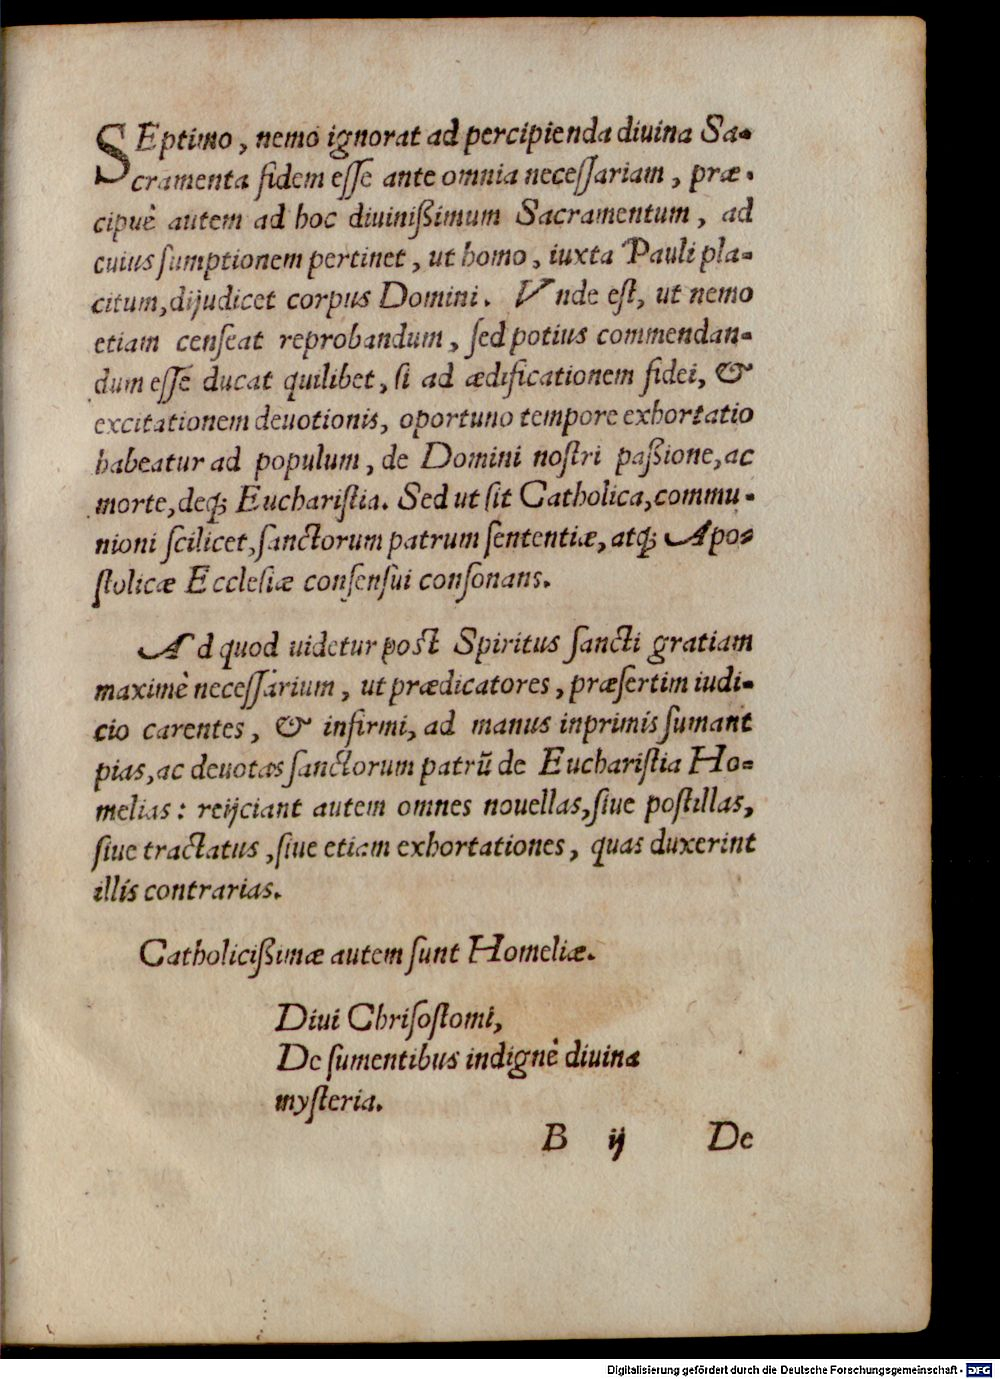 SEptimo, nemo ignorat ad percipienda diuina Sa-
cramenta fidem eſſe ante omnia neceſſariam, præ-
cipuè autem ad hoc diuinißimum Sacramentum, ad
cuius ſumptionem pertinet, ut homo, iuxta Pauli pla-
citum, dijudicet corpus Domini. Vnde eſt, ut nemo
etiam cenſeat reprobandum, ſed potius commendan-
dum eſſe ducat quilibet, ſi ad ædificationem fidei, &
excitationem deuotionis, oportuno tempore exhortatio
habeatur ad populum, de Domini noſtri paßione, ac
morte, deq́; Euchariſtia. Sed ut ſit Catholica, commu-
nioni ſcilicet, ſanctorum patrum ſententiæ, atq́; Apo-
ſtolicæ Eccleſiæ conſenſui conſonans.
Ad quod uidetur poſt Spiritus ſancti gratiam
maximè neceſſarium, ut prædicatores, præſertim iudi-
cio carentes, & infirmi, ad manus inprimis ſumant
pias, ac deuotas ſanctorum patrũ de Euchariſtia Ho-
melias: reijciant autem omnes nouellas, ſiue poſtillas,
ſiue tractatus, ſiue etiam exhortationes, quas duxerint
illis contrarias.
Catholicißimæ autem ſunt Homeliæ.
Diui Chriſoſtomi,
De ſumentibus indignè diuina
myſteria.
B ij De
Digitalisierung gefördert durch die Deutsche Forschungsgemeinschaft - DFG